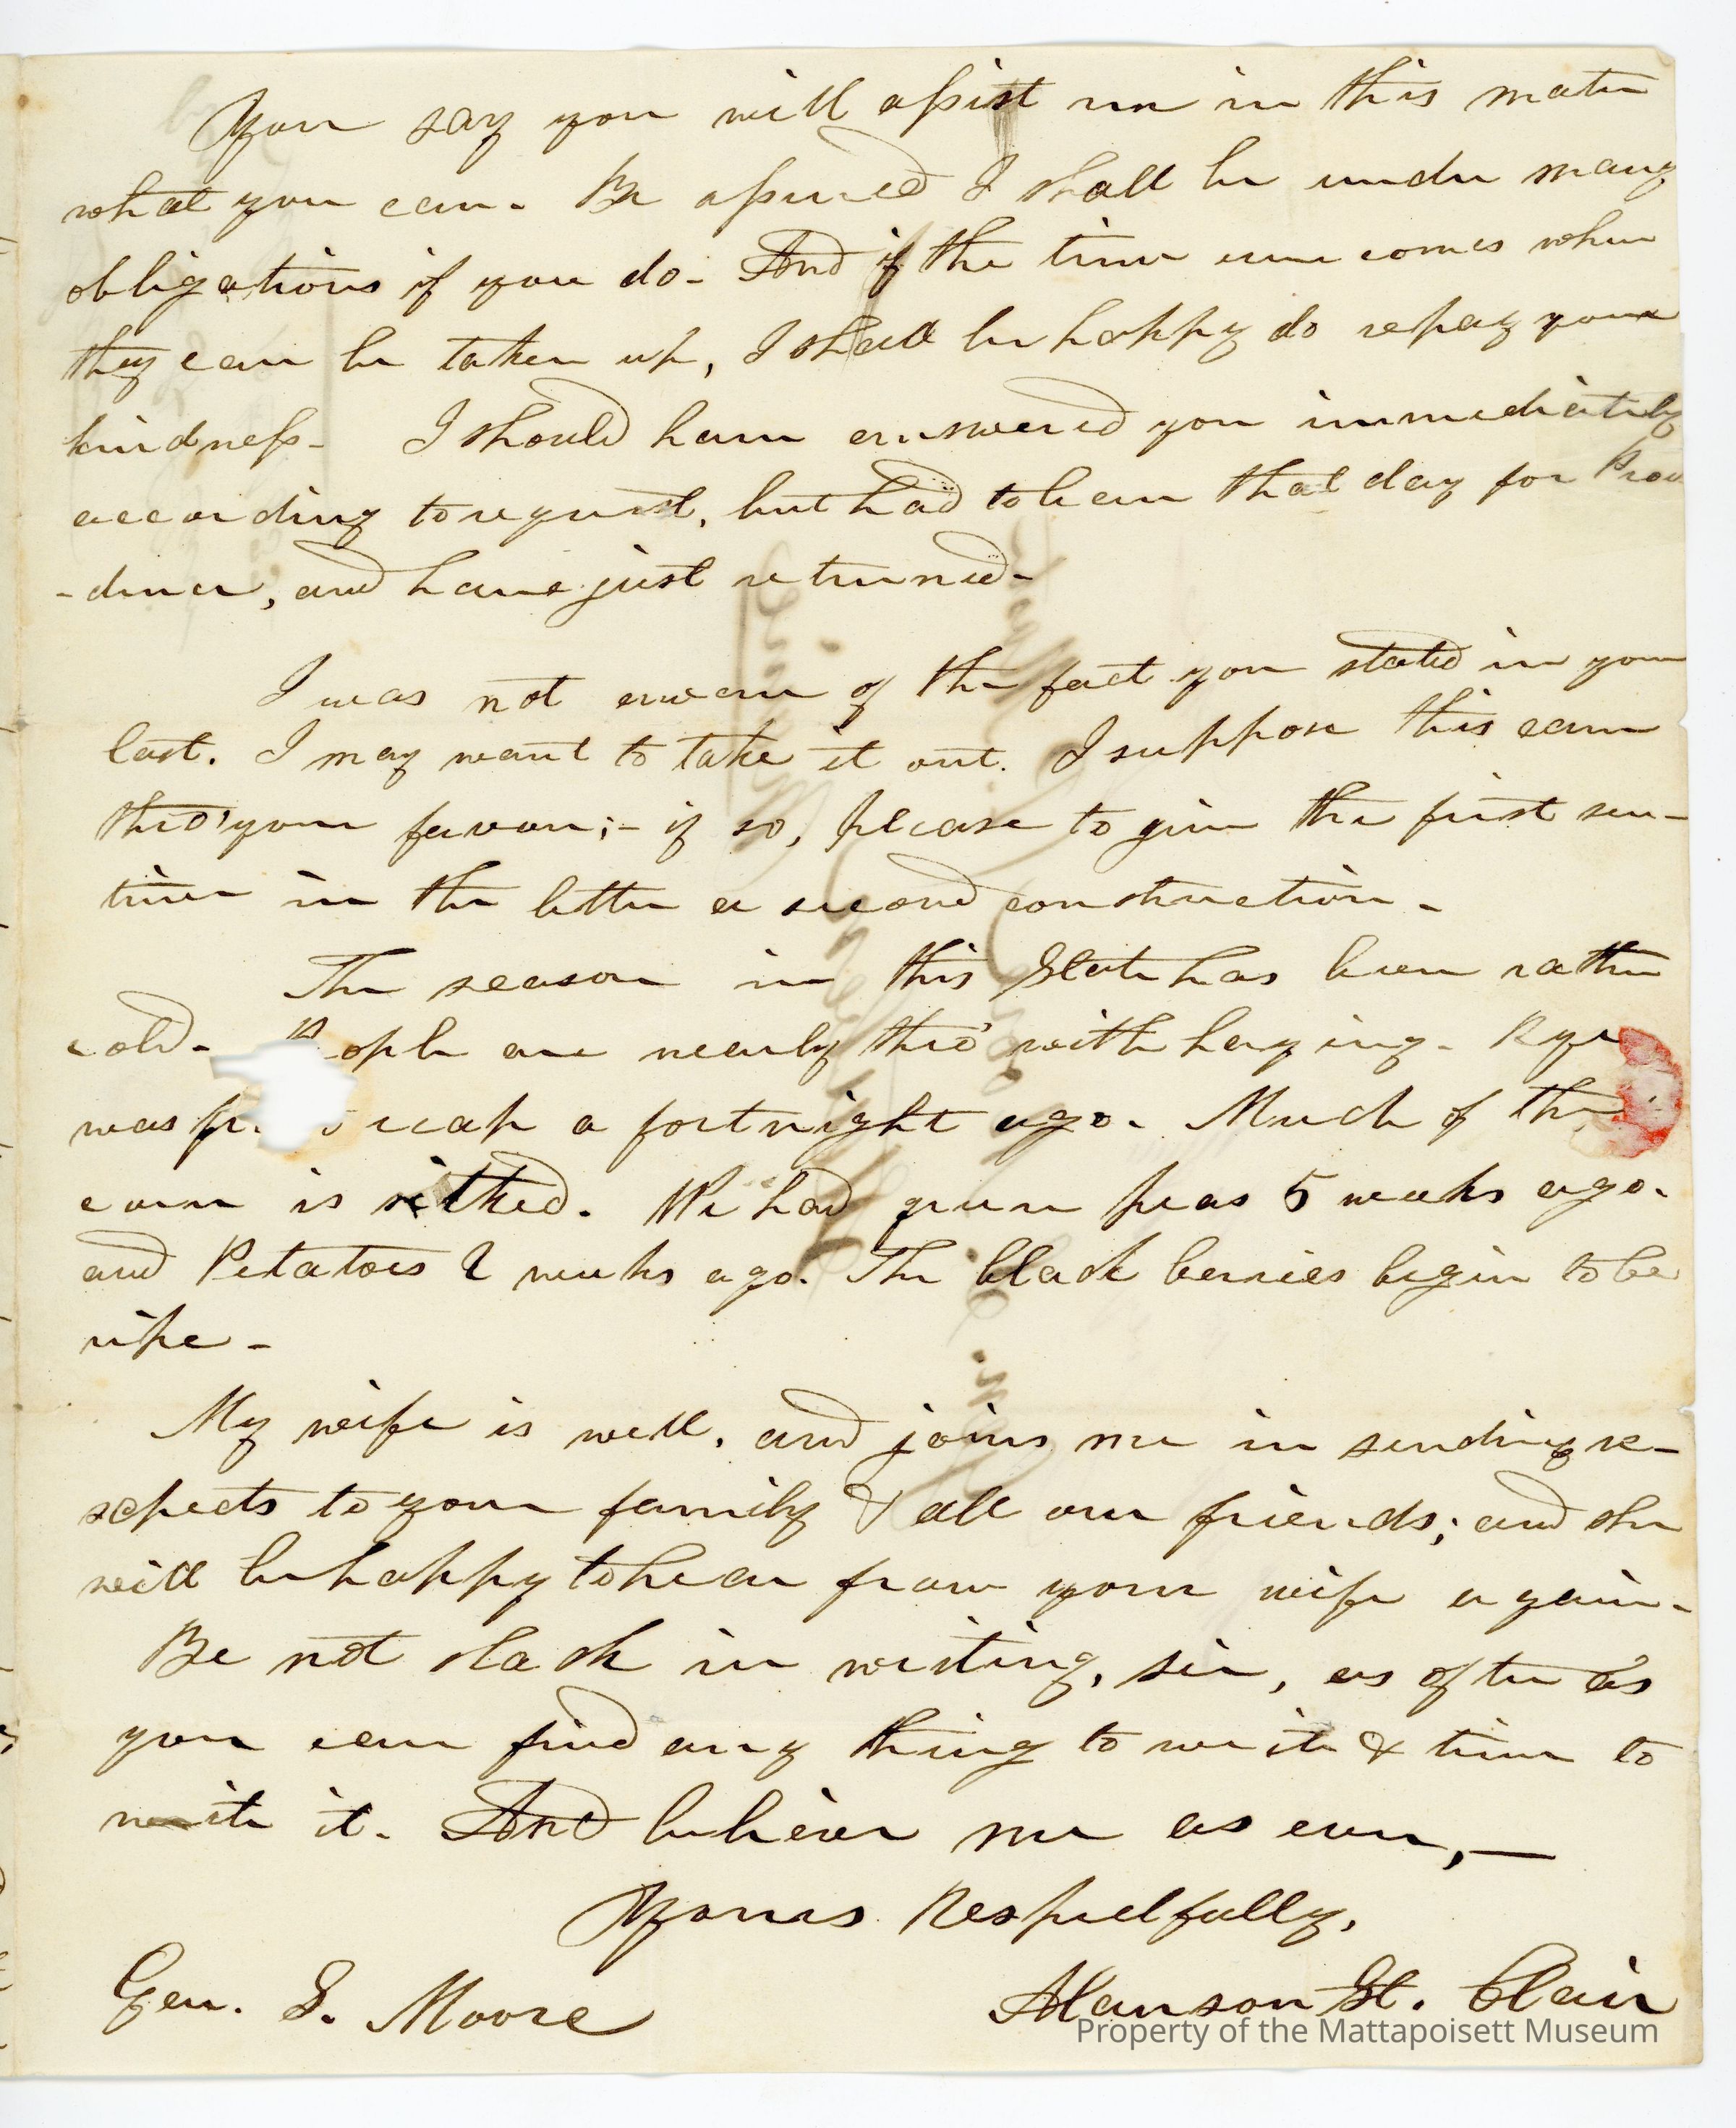 You say you will assist me in this matter
what you can. Be assured I shall be under many
obligations if you do. And if the time ever comes when
they can be taken up, I shall be happy do repay your
kindness - I should have answered you immediately
according to request, but had to leave that day for Prov
-dence, and have just returned -
I was not aware of the fact you stated in your
last. I may want to take it out. I suppose this came
thro' your favour; - if so, please to give the first sen-
tence in the letter a second construction -
The season in this State has been rather
cold - People are nearly thro' with haying - Rye
was reap a fortnight ago. Much of the
corn is . We had green peas 5 weeks ago.
and Petatoes 2 weeks ago. The black berries begin to be
ripe -
My wife is well, and joins me in sending re-
spects to your family & all our friends; and she
will be happy to hear from your wife again -
Be not slack in writing, sir, as often as
you can find any thing to write & time to
write it. And believe me as ever, —
Yours Respectfully,
Gen. S. Moore
Alanson St. Clair
Property of the Mattapoisett Museum